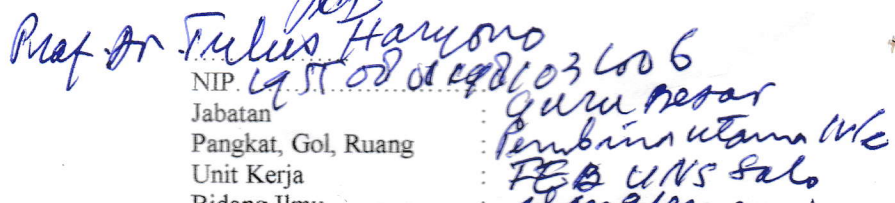 Prof. Dr. Tulus Haryono
NIP. 195508011981031006
Jabatan : Guru Besar
Pangkat, Gol, Ruang : Pembina Utama IV/e
Unit Kerja : FEB UNS Solo
Bidang Ilmu :